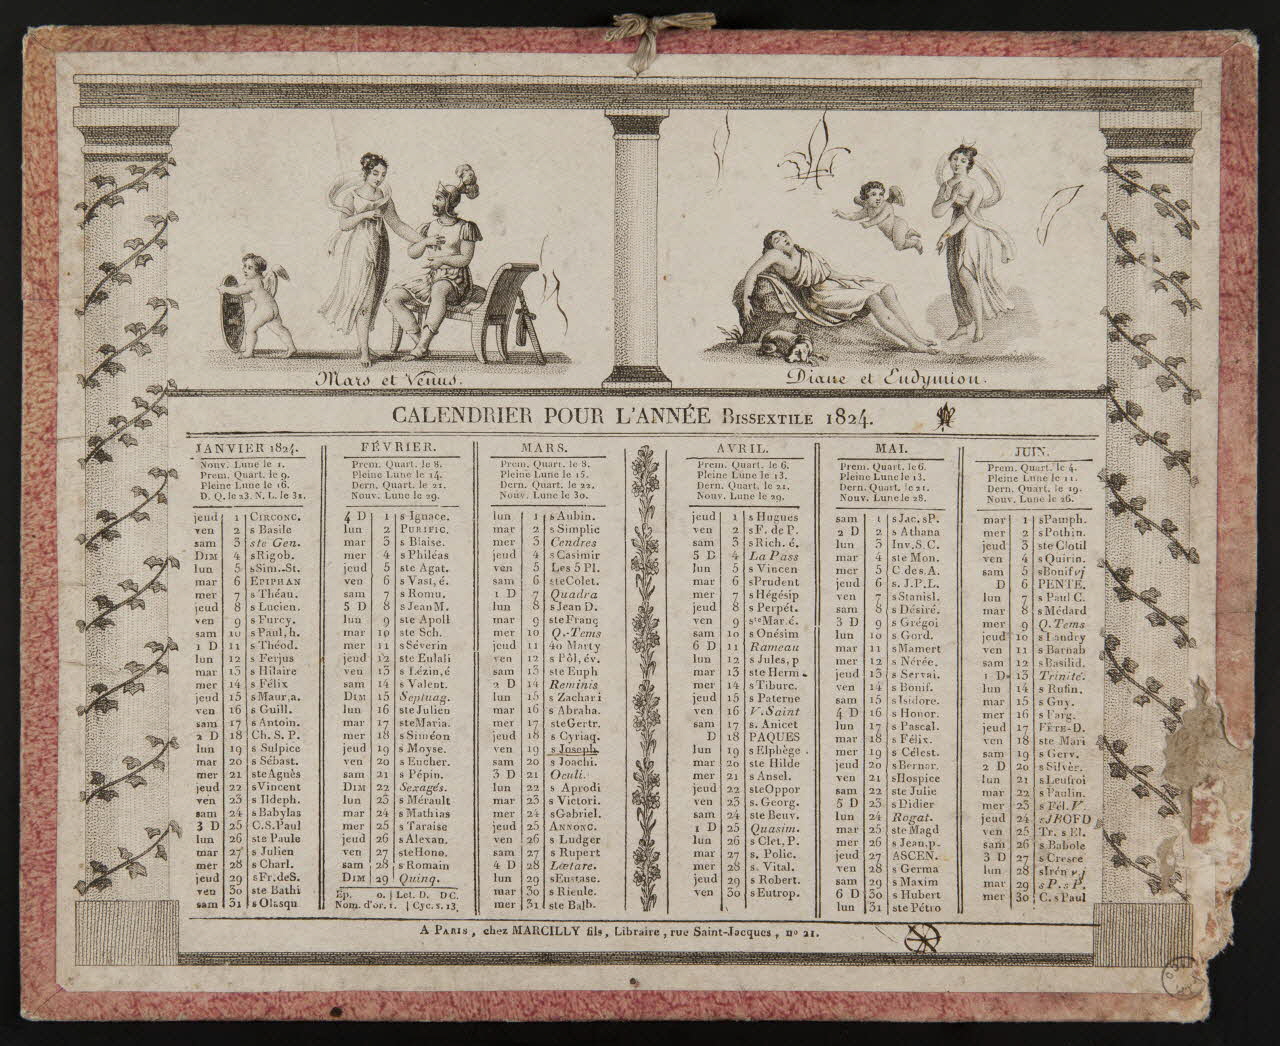 Mars et Vénus.
Diane et Endymion.
CALENDRIER POUR L'ANNÉE BISSEXTILE 1824.
JANVIER 1824.
Nouv. Lune le 1.
Prem. Quart. le 9.
Pleine Lune le 16.
D. Q. le 23. N. L. le 31.
jeud 1 CIRCONC.
ven 2 s Basile
sam 3 ste Gen.
DIM 4 s Rigob.
lun 5 s Sim.-St.
mar 6 EPIPHAN
mer 7 s Théau.
jeud 8 s Lucien.
ven 9 s Furcy.
sam 10 s Paul, h.
1 D 11 s Théod.
lun 12 s Ferjus
mar 13 s Hilaire
mer 14 s Félix
jeud 15 s Maur, a.
ven 16 s Guill.
sam 17 s Antoin.
2 D 18 Ch. S. P.
lun 19 s Sulpice
mar 20 s Sébast.
mer 21 ste Agnès
jeud 22 s Vincent
ven 23 s Ildeph.
sam 24 s Babylas
3 D 25 C. S. Paul
lun 26 ste Paule
mar 27 s Julien
mer 28 s Charl.
jeud 29 s Fr. de S.
ven 30 ste Bathi
sam 31 s Olasqu
FÉVRIER.
Prem. Quart. le 8.
Pleine Lune le 14.
Dern. Quart. le 21.
Nouv. Lune le 29.
4 D 1 s Ignace.
lun 2 PURIFIC.
mar 3 s Blaise.
mer 4 s Philéas
jeud 5 ste Agat.
ven 6 s Vast, é.
sam 7 s Romu.
5 D 8 s Jean M.
lun 9 ste Apoll
mar 10 ste Sch.
mer 11 s Séverin
jeud 12 ste Eulali
ven 13 s Lézin, é
sam 14 s Valent.
DIM 15 Septuag.
lun 16 ste Julien
mar 17 ste Maria.
mer 18 s Siméon
jeud 19 s Moyse.
ven 20 s Eucher.
sam 21 s Pépin.
DIM 22 Sexagés.
lun 23 s Mérault
mar 24 s Mathias
mer 25 s Taraise
jeud 26 s Alexan.
ven 27 ste Hono.
sam 28 s Romain
DIM 29 Quinq.
Ép. 0. | Let. D. DC.
Nom. d'or. 1. | Cyc. s. 13.
MARS.
Prem. Quart. le 8.
Pleine Lune le 15.
Dern. Quart. le 22.
Nouv. Lune le 30.
lun 1 s Aubin.
mar 2 s Simplic
mer 3 Cendres
jeud 4 s Casimir
ven 5 Les 5 Pl.
sam 6 ste Colet.
1 D 7 Quadra
lun 8 s Jean D.
mar 9 ste Franç
mer 10 Q.-Tems
jeud 11 40 Marty
ven 12 s Pôl, év.
sam 13 ste Euph
2 D 14 Reminis
lun 15 s Zachari
mar 16 s Abraha.
mer 17 ste Gertr.
jeud 18 s Cyriaq.
ven 19 s Joseph
sam 20 s Joachi.
3 D 21 Oculi.
lun 22 s Aprodi
mar 23 s Victori.
mer 24 s Gabriel.
jeud 25 ANNONC.
ven 26 s Ludger
sam 27 s Rupert
4 D 28 Lætare.
lun 29 s Eustase.
mar 30 s Rieule.
mer 31 ste Balb.
AVRIL.
Prem. Quart. le 6.
Pleine Lune le 13.
Dern. Quart. le 21.
Nouv. Lune le 29.
jeud 1 s Hugues
ven 2 s F. de P.
sam 3 s Rich. é.
5 D 4 La Pass
lun 5 s Vincen
mar 6 s Prudent
mer 7 s Hégésip
jeud 8 s Perpét.
ven 9 ste Mar. é.
sam 10 s Onésim
6 D 11 Rameau
lun 12 s Jules, p
mar 13 ste Herm.
mer 14 s Tiburc.
jeud 15 s Paterne
ven 16 V. Saint
sam 17 s. Anicet
D 18 PAQUES
lun 19 s Elphège.
mar 20 ste Hilde
mer 21 s Ansel.
jeud 22 ste Oppor
ven 23 s. Georg.
sam 24 ste Beuv.
1 D 25 Quasim.
lun 26 s Clet, P.
mar 27 s. Polic.
mer 28 s. Vital.
jeud 29 s Robert.
ven 30 s Eutrop.
MAI.
Prem. Quart. le 6.
Pleine Lune le 13.
Dern. Quart. le 21.
Nouv. Lune le 28.
sam 1 s Jac. s P.
2 D 2 s Athana
lun 3 Inv. S. C.
mar 4 ste Mon.
mer 5 C de s. A.
jeud 6 s. J. P. L.
ven 7 s Stanisl.
sam 8 s Désiré.
3 D 9 s Grégoi
lun 10 s Gord.
mar 11 s Mamert
mer 12 s Nérée.
jeud 13 s Servai.
ven 14 s Bonif.
sam 15 s Isidore.
4 D 16 s Honor.
lun 17 s Pascal.
mar 18 s Félix.
mer 19 s Célest.
jeud 20 s Bernar.
ven 21 s Hospice
sam 22 ste Julie
5 D 23 s Didier
lun 24 Rogat.
mar 25 ste Magd
mer 26 s Jean, p.
jeud 27 ASCEN.
ven 28 s Germa
sam 29 s Maxim
6 D 30 s Hubert
lun 31 ste Pétro
JUIN.
Prem. Quart. le 4.
Pleine Lune le 11.
Dern. Quart. le 19.
Nouv. Lune le 26.
mar 1 s Pamph.
mer 2 s Pothin.
jeud 3 ste Clotil
ven 4 s Quirin.
sam 5 s Bonif vj
D 6 PENTE.
lun 7 s Paul C.
mar 8 s Médard
mer 9 Q. Tems
jeud 10 s Landry
ven 11 s Barnab
sam 12 s Basilid.
1 D 13 Trinité.
lun 14 s Rufin.
mar 15 s Guy.
mer 16 s Farg.
jeud 17 FÊTE-D.
ven 18 ste Mari
sam 19 s Gerv.
2 D 20 s Silvèr.
lun 21 s Leufroi
mar 22 s Paulin.
mer 23 s Fél. V.
jeud 24 s JBOFD
ven 25 Tr. s El.
sam 26 s Babole
3 D 27 s Cresce
lun 28 s Irén vj
mar 29 s P. s P.
mer 30 C. s Paul
A PARIS, chez MARCILLY fils, Libraire, rue Saint-Jacques, n° 21.